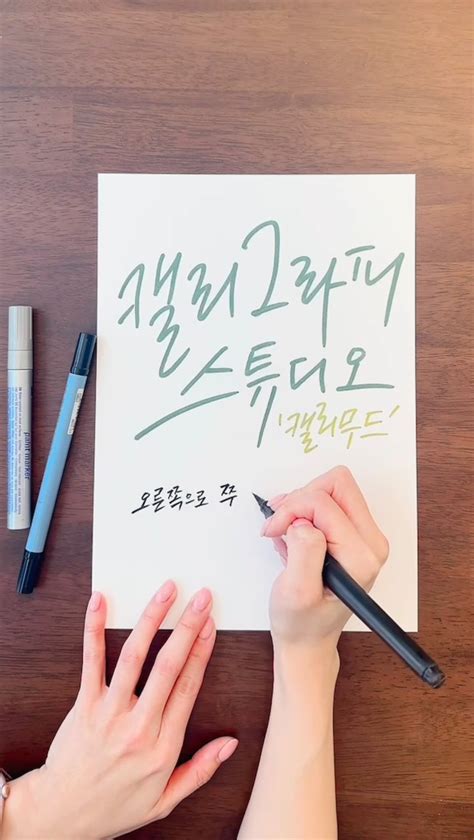 캘리그라피
스튜디오
'캘리무드'
오른쪽으로 쭈
paint marker